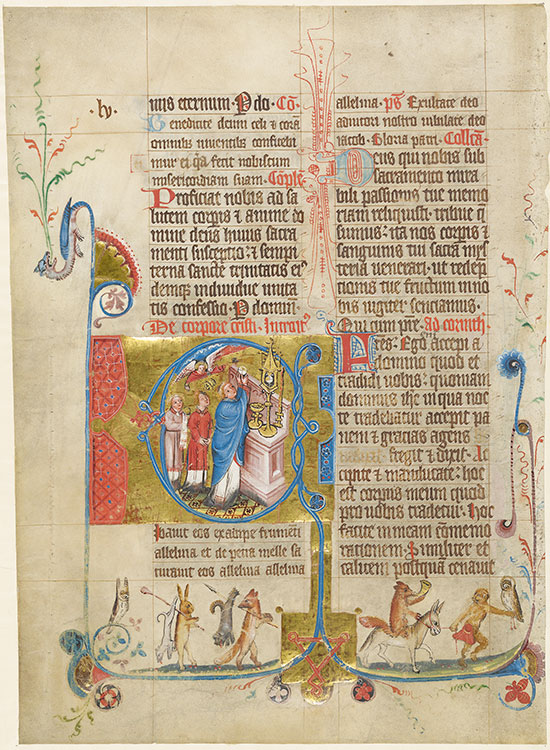 ·lv·
nus eternum · P do · Cō
Benedicite deum celi et corā
omnibus viventibus confitebi
mur ei qa fecit nobiscum
misericordiam suam · Cōple
Proficiat nobis ad sa
lutem corporis et anime do
mine deus huius sacra
menti susceptio : et sempi
terna sancte trinitatis ei
demque individue unita
tis confessio · P dominū
De corpore cristi · Introit
Cibavit eos ex adipe frumenti
allelvia et de petra melle sa
turavit eos allelvia allelvia
allelvia · ps Exultate deo
adiutori nostro iubilate deo
iacob · Gloria patri · Collcā
Deus qui nobis sub
sacramento mira
bili passionis tue memo
riam reliquisti · tribue q
sumus : ita nos corporis et
sanguinis tui sacra mis
teria venerari · ut redemp
tionis tue fructum in no
bis iugiter senciamus ·
Qui cum pre · ad corinth ·
Fres : Ego accepi a
domino quod et
tradidi vobis : quoniam
dominus ihc in qua noc
te tradebatur accepit pa
nem et gracias agens
fregit et dixit · Ac
cipite et manducate : hoc
est corpus meum quod
pro vobis tradetur · hoc
facite in meam cōmemo
rationem · Similiter et
calicem postquam cenavit